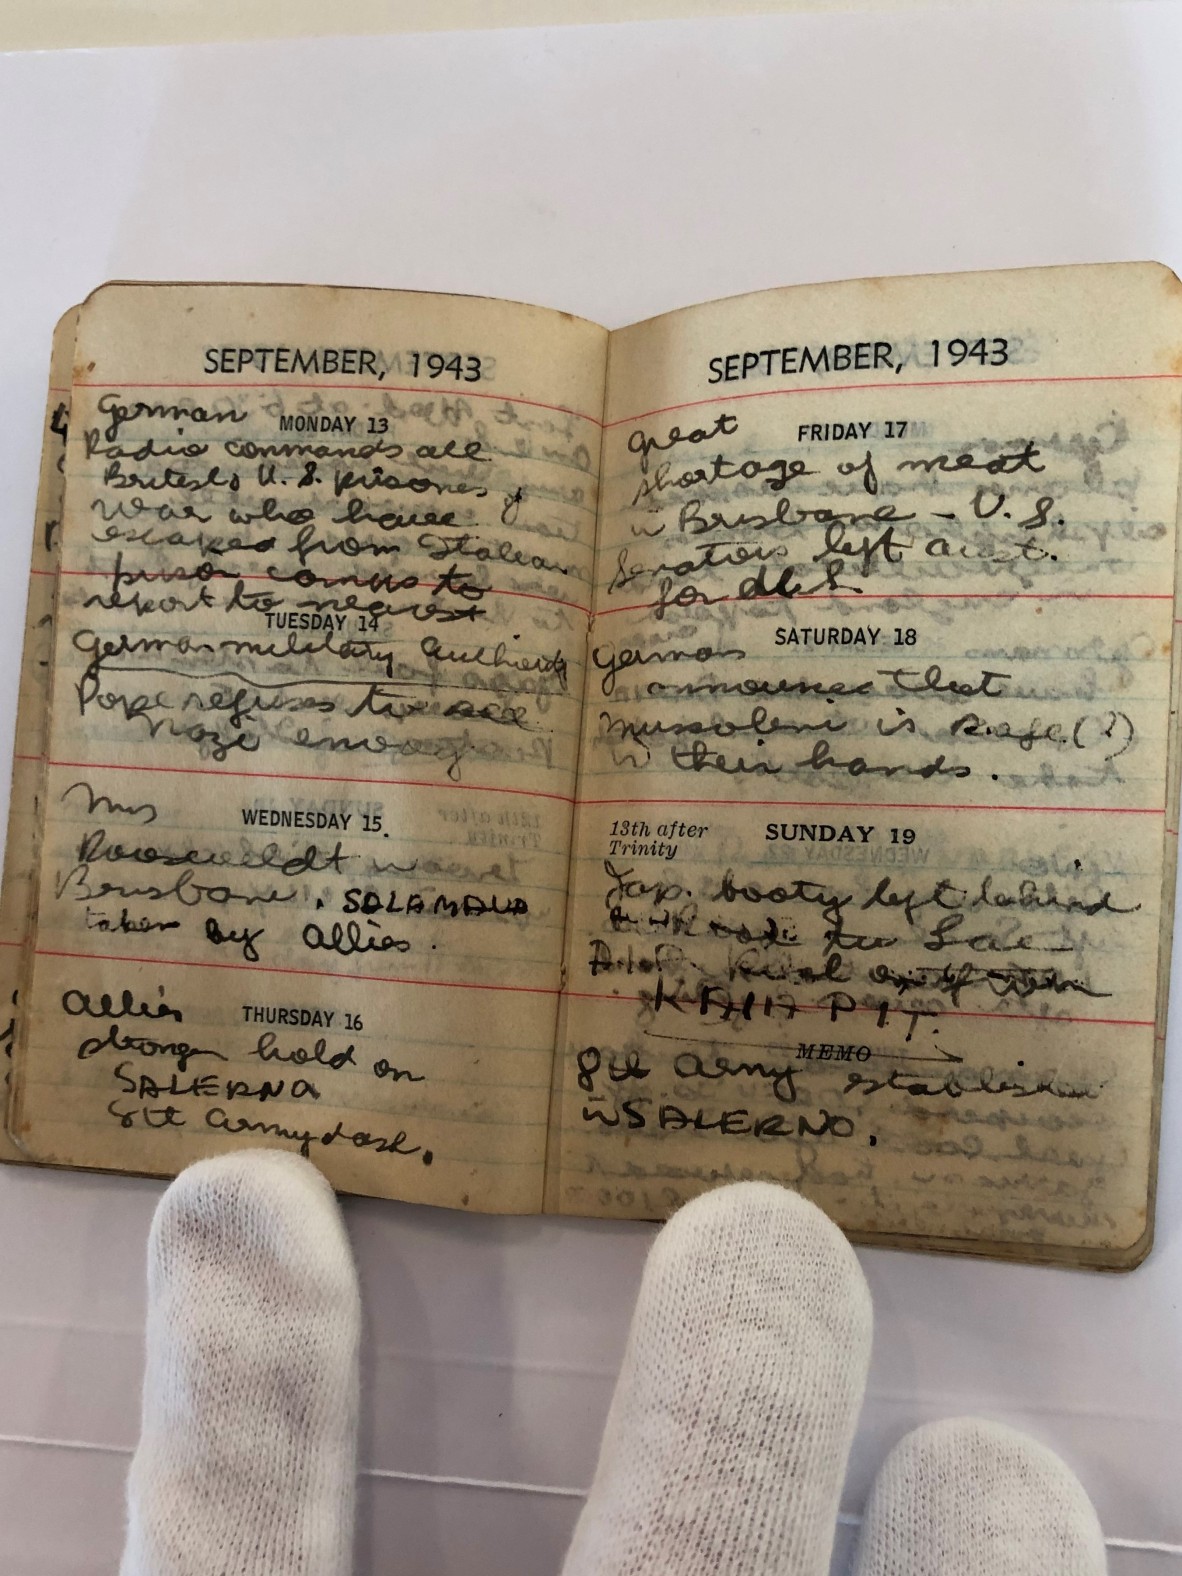 SEPTEMBER, 1943
German
MONDAY 13
Radio commands all
British & U.S. prisoners of
War who have
escaped from Italian
prison camps to
report to nearest
TUESDAY 14
German military authority
Pope refuses to see
Nazi envoy
Mrs
WEDNESDAY 15
Rooseveldt
Brisbane. SALAMAUA
taken by Allies.
Allies
THURSDAY 16
stronger hold on
SALERNA
8th Army dash.
SEPTEMBER, 1943
Great
FRIDAY 17
shortage of meat
in Brisbane - U.S.
Senators left Aust.
for
SATURDAY 18
German
announce that
Mussolini is safe(?)
in their hands.
13th after
Trinity
SUNDAY 19
Jap. booty left behind
to Lae
KAIAPIT.
MEMO
8th Army establish
in SALERNO.